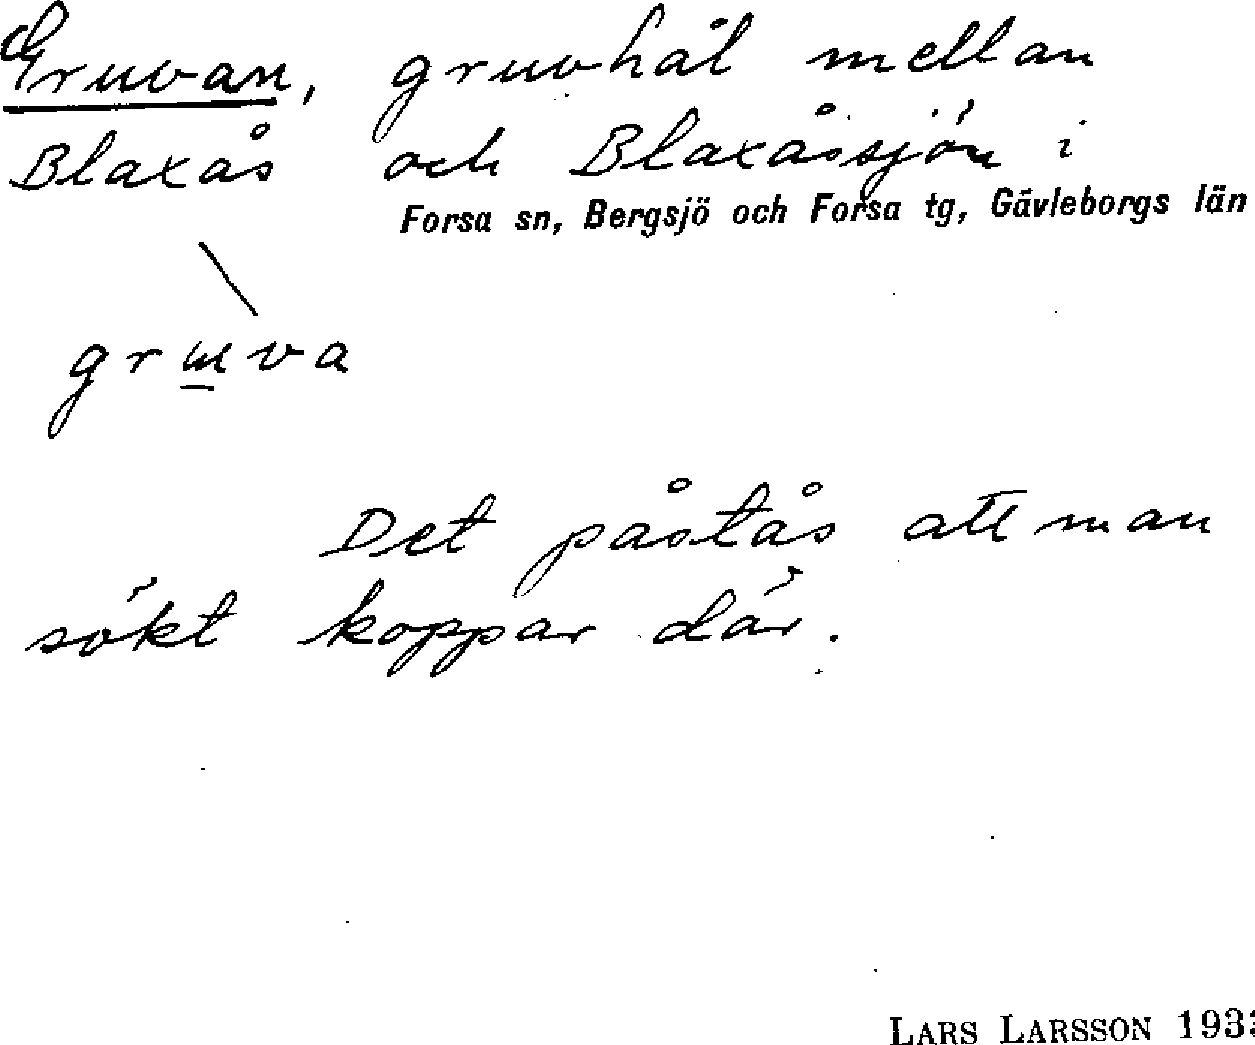 Gruvan, gruvhål mellan
Blaxås och Blaxåssjön i
Forsa sn, Bergsjö och Forsa tg, Gävleborgs län
gruva
Det påstås att man
sökt koppar där.
LARS LARSSON 193